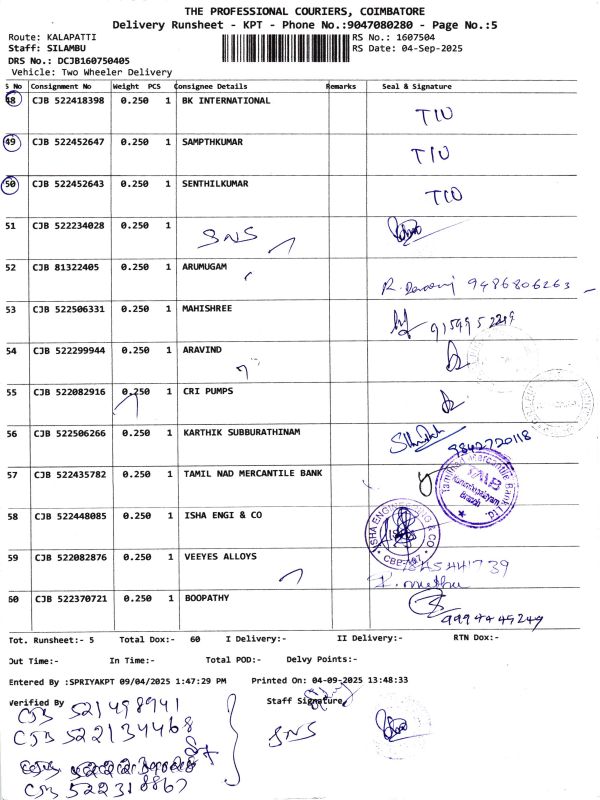 THE PROFESSIONAL COURIERS, COIMBATORE
Delivery Runsheet - KPT - Phone No.:9047080280 - Page No.:5
Route: KALAPATTI RS No.: 1607504
Staff: SILAMBU RS Date: 04-Sep-2025
DRS No.: DCJB160750405
Vehicle: Two Wheeler Delivery
S No Consignment No Weight PCS Consignee Details Remarks Seal & Signature
48 CJB 522418398 0.250 1 BK INTERNATIONAL TIU
49 CJB 522452647 0.250 1 SAMPTHKUMAR TIU
50 CJB 522452643 0.250 1 SENTHILKUMAR TIU
51 CJB 522234028 0.250 1 SNS
52 CJB 81322405 0.250 1 ARUMUGAM 9486806263
53 CJB 522506331 0.250 1 MAHISHREE 9159952219
54 CJB 522299944 0.250 1 ARAVIND
55 CJB 522082916 0.250 1 CRI PUMPS
56 CJB 522506266 0.250 1 KARTHIK SUBBURATHINAM 9842720118
57 CJB 522435782 0.250 1 TAMIL NAD MERCANTILE BANK Tamilnad Mercantile Bank Ltd. TMB Branch
58 CJB 522448085 0.250 1 ISHA ENGI & CO ISHA ENGINEERING & CO
59 CJB 522082876 0.250 1 VEEYES ALLOYS
60 CJB 522370721 0.250 1 BOOPATHY
Tot. Runsheet:- 5 Total Dox:- 60 I Delivery:- II Delivery:- RTN Dox:-
Out Time:- In Time:- Total POD:- Delvy Points:-
Entered By :SPRIYAKPT 09/04/2025 1:47:29 PM Printed On: 04-09-2025 13:48:33
Verified By Staff Signature
CJB 521498941
CJB 522134468 SNS
CJB 522318867